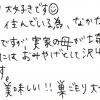 大好きです☺
住んでいる為、なかなか
ですが、実家の母が
にに、おみやげとして沢山
す。
美味しい!!巣ごもり